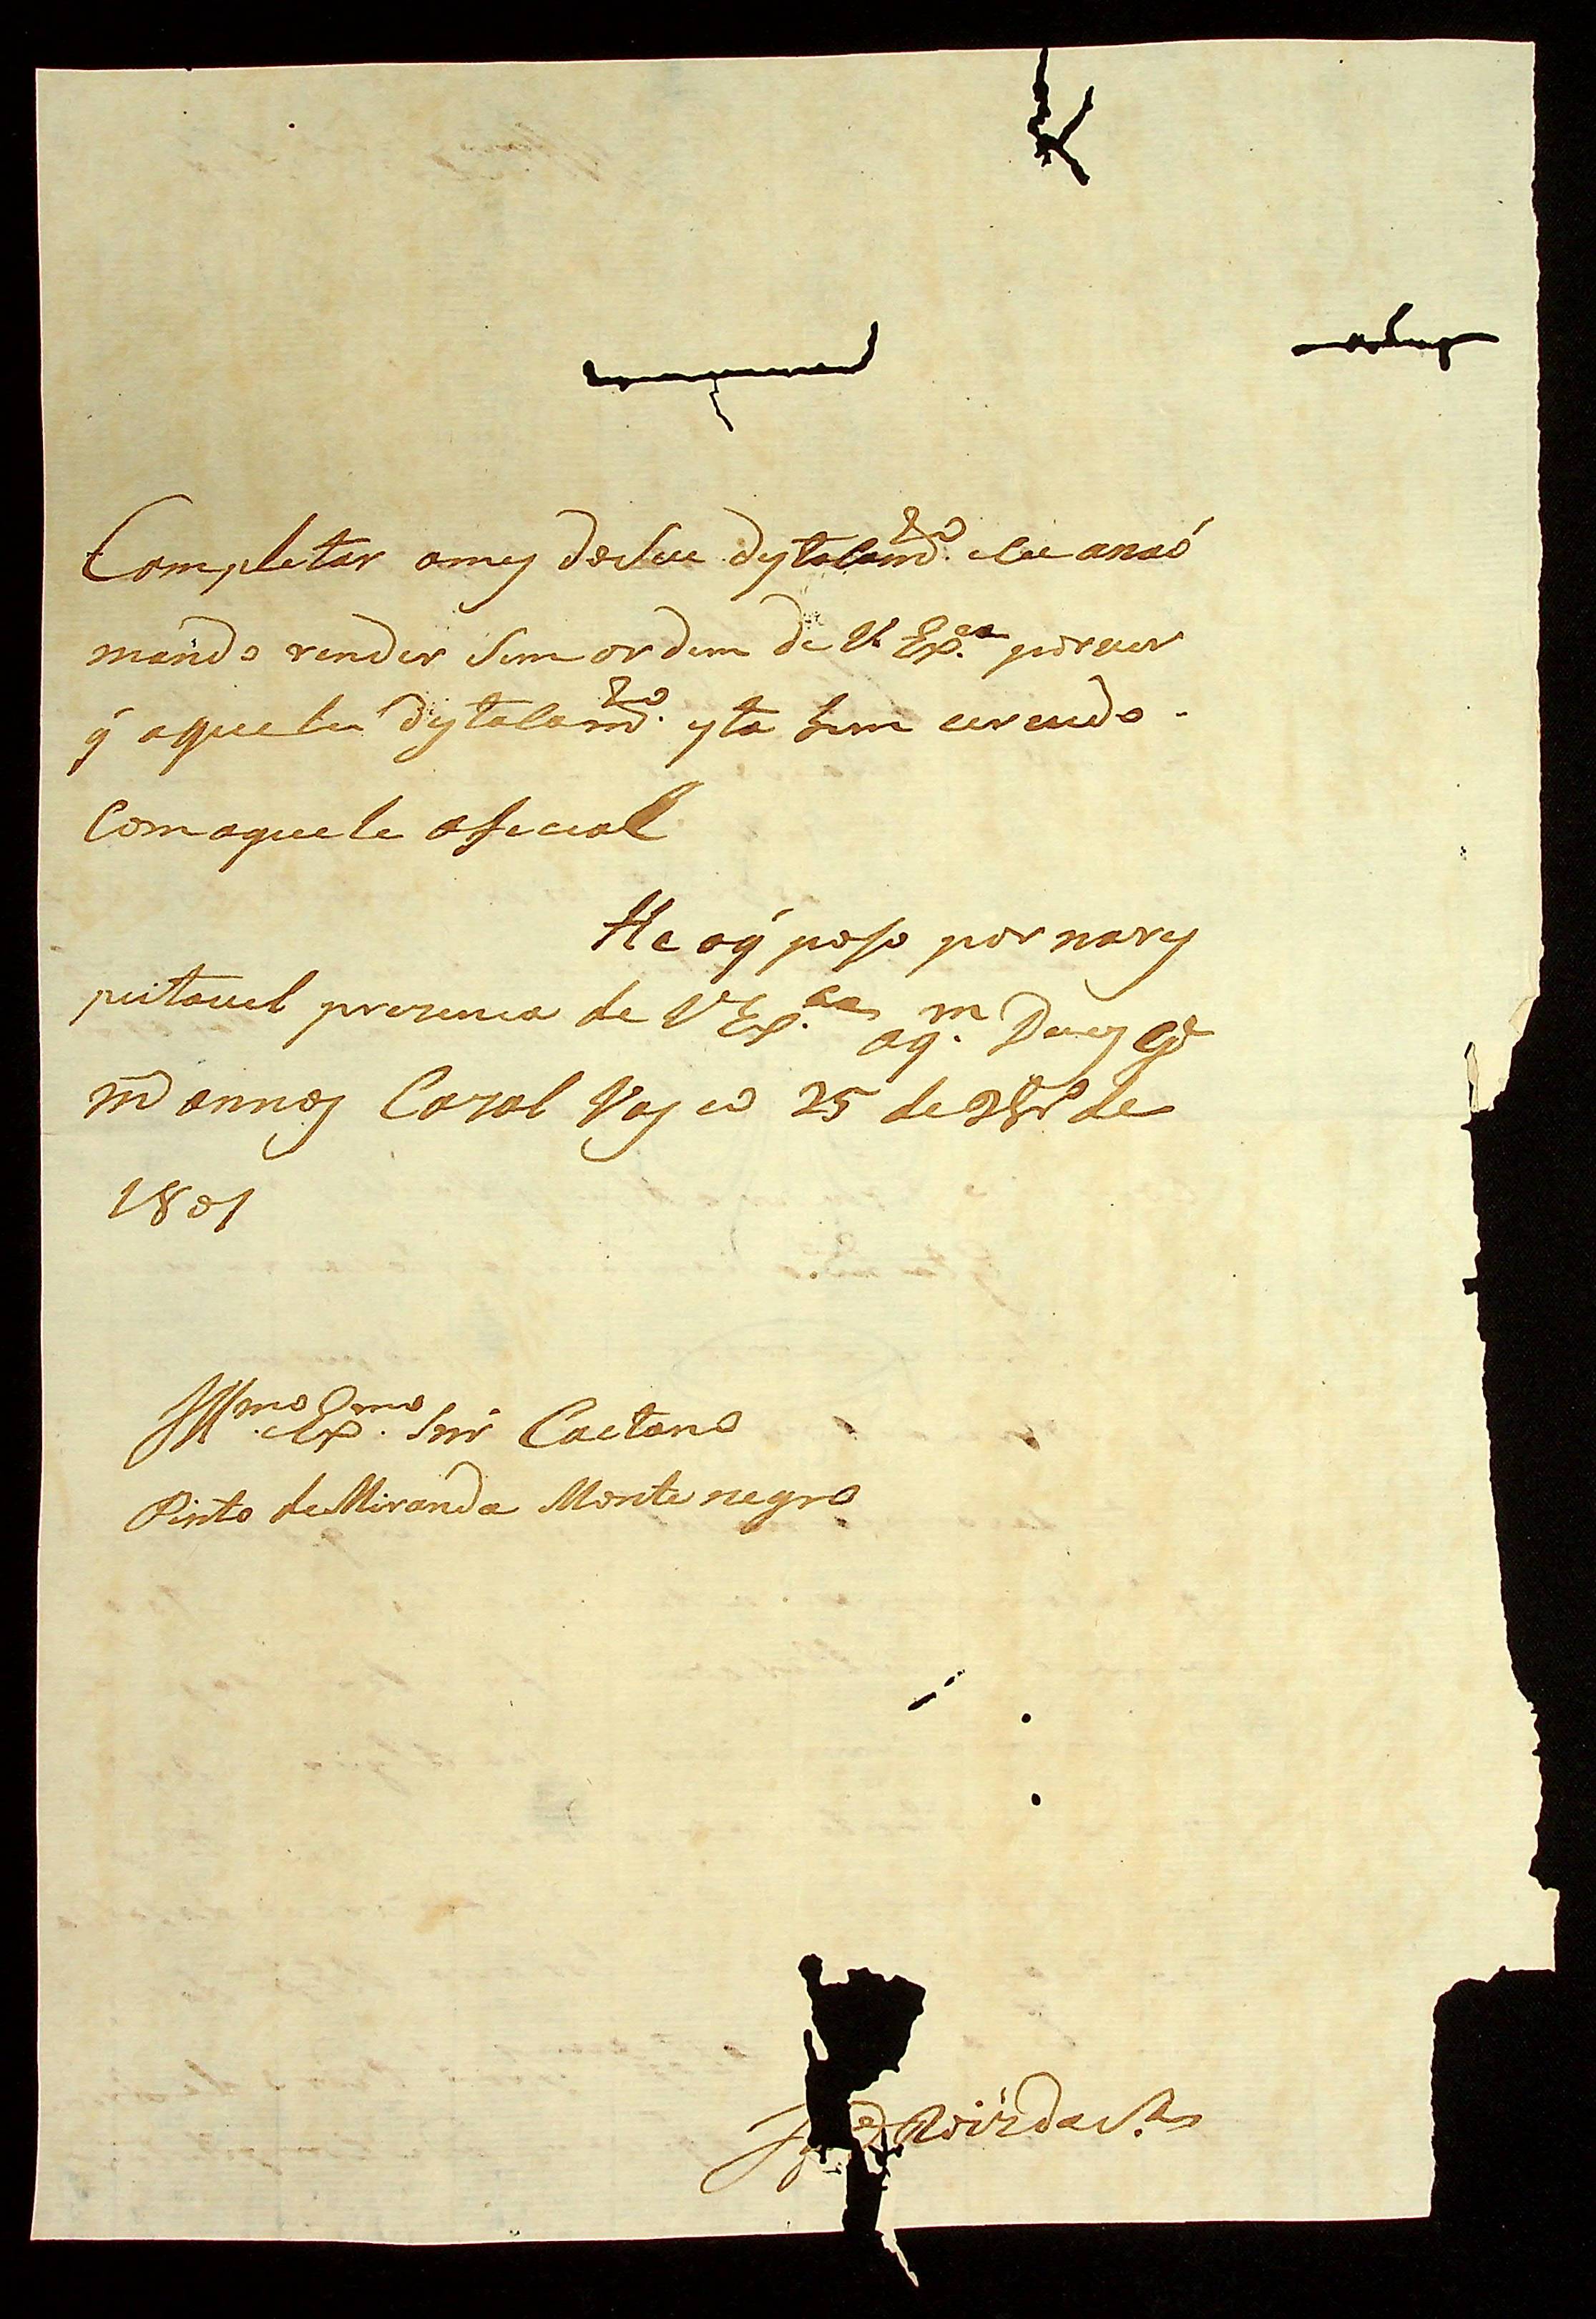 Completar o mes do seu dystacam.to e eu anaó
mando render sem ordem de V Ex.ca por ver
q̃ aquele dystacam.to ysta bem cervido.
Com aquele ofecial
He oq̃ poso por na res
peitavel prezenca de V Ex.ca aq.m Deos g.e
m.s annos Cazal Vasco 25 de de
1801
Ill.mo e Ex.mo Snr Caetano
Pinto de Miranda Montenegro